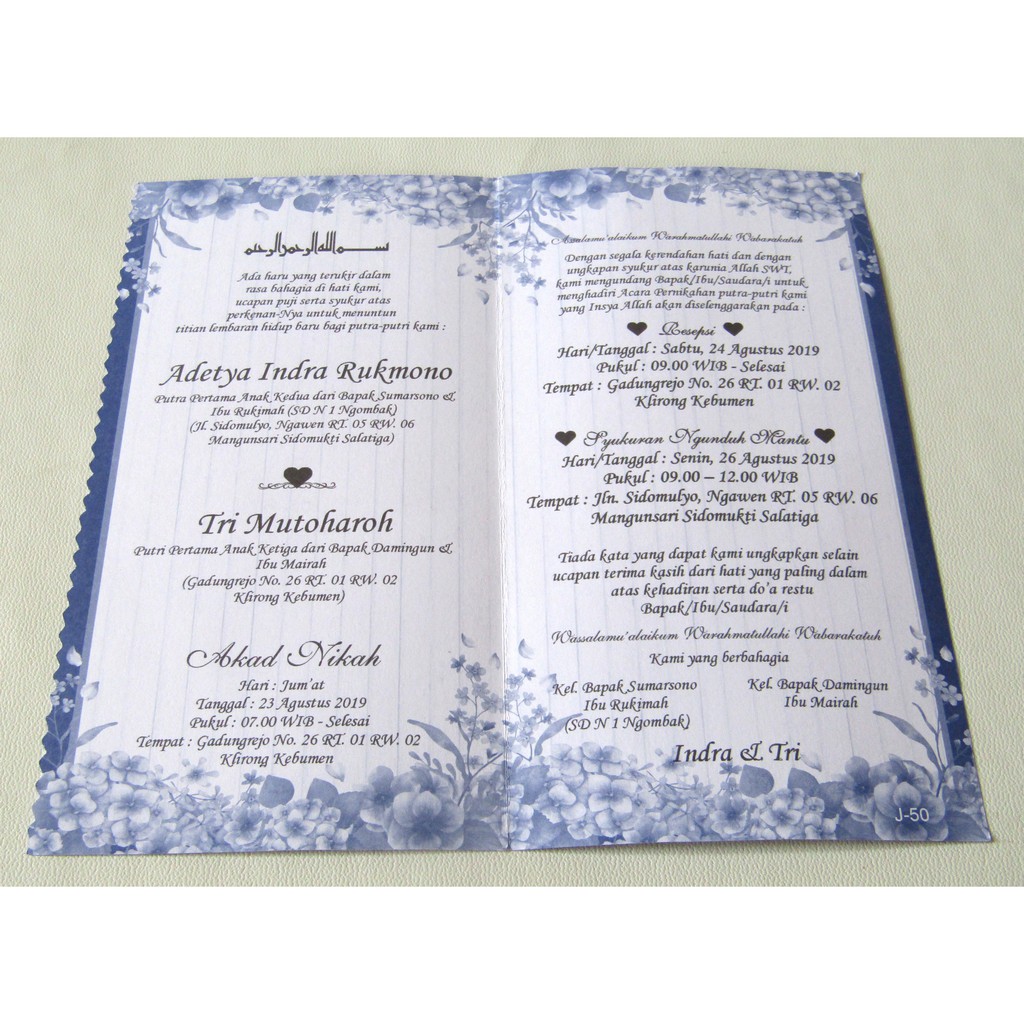 بسم الله الرحمن الرحيم
Ada haru yang terukir dalam
rasa bahagia di hati kami,
ucapan puji serta syukur atas
perkenan-Nya untuk menuntun
titian lembaran hidup baru bagi putra-putri kami :
Adetya Indra Rukmono
Putra Pertama Anak Kedua dari Bapak Sumarsono &
Ibu Rukimah (SD N 1 Ngombak)
(Jl. Sidomulyo, Ngawen RT. 05 RW. 06
Mangunsari Sidomukti Salatiga)
Tri Mutoharoh
Putri Pertama Anak Ketiga dari Bapak Damingun &
Ibu Mairah
(Gadungrejo No. 26 RT. 01 RW. 02
Klirong Kebumen)
Akad Nikah
Hari : Jum'at
Tanggal : 23 Agustus 2019
Pukul : 07.00 WIB - Selesai
Tempat : Gadungrejo No. 26 RT. 01 RW. 02
Klirong Kebumen
Assalamu'alaikum Warahmatullahi Wabarakatuh
Dengan segala kerendahan hati dan dengan
ungkapan syukur atas karunia Allah SWT,
kami mengundang Bapak/Ibu/Saudara/i untuk
menghadiri Acara Pernikahan putra-putri kami
yang Insya Allah akan diselenggarakan pada :
Resepsi
Hari/Tanggal : Sabtu, 24 Agustus 2019
Pukul : 09.00 WIB - Selesai
Tempat : Gadungrejo No. 26 RT. 01 RW. 02
Klirong Kebumen
Syukuran Ngunduh Mantu
Hari/Tanggal : Senin, 26 Agustus 2019
Pukul : 09.00 – 12.00 WIB
Tempat : Jln. Sidomulyo, Ngawen RT. 05 RW. 06
Mangunsari Sidomukti Salatiga
Tiada kata yang dapat kami ungkapkan selain
ucapan terima kasih dari hati yang paling dalam
atas kehadiran serta do'a restu
Bapak/Ibu/Saudara/i
Wassalamu'alaikum Warahmatullahi Wabarakatuh
Kami yang berbahagia
Kel. Bapak Sumarsono
Ibu Rukimah
(SD N 1 Ngombak)
Kel. Bapak Damingun
Ibu Mairah
Indra & Tri
J-50